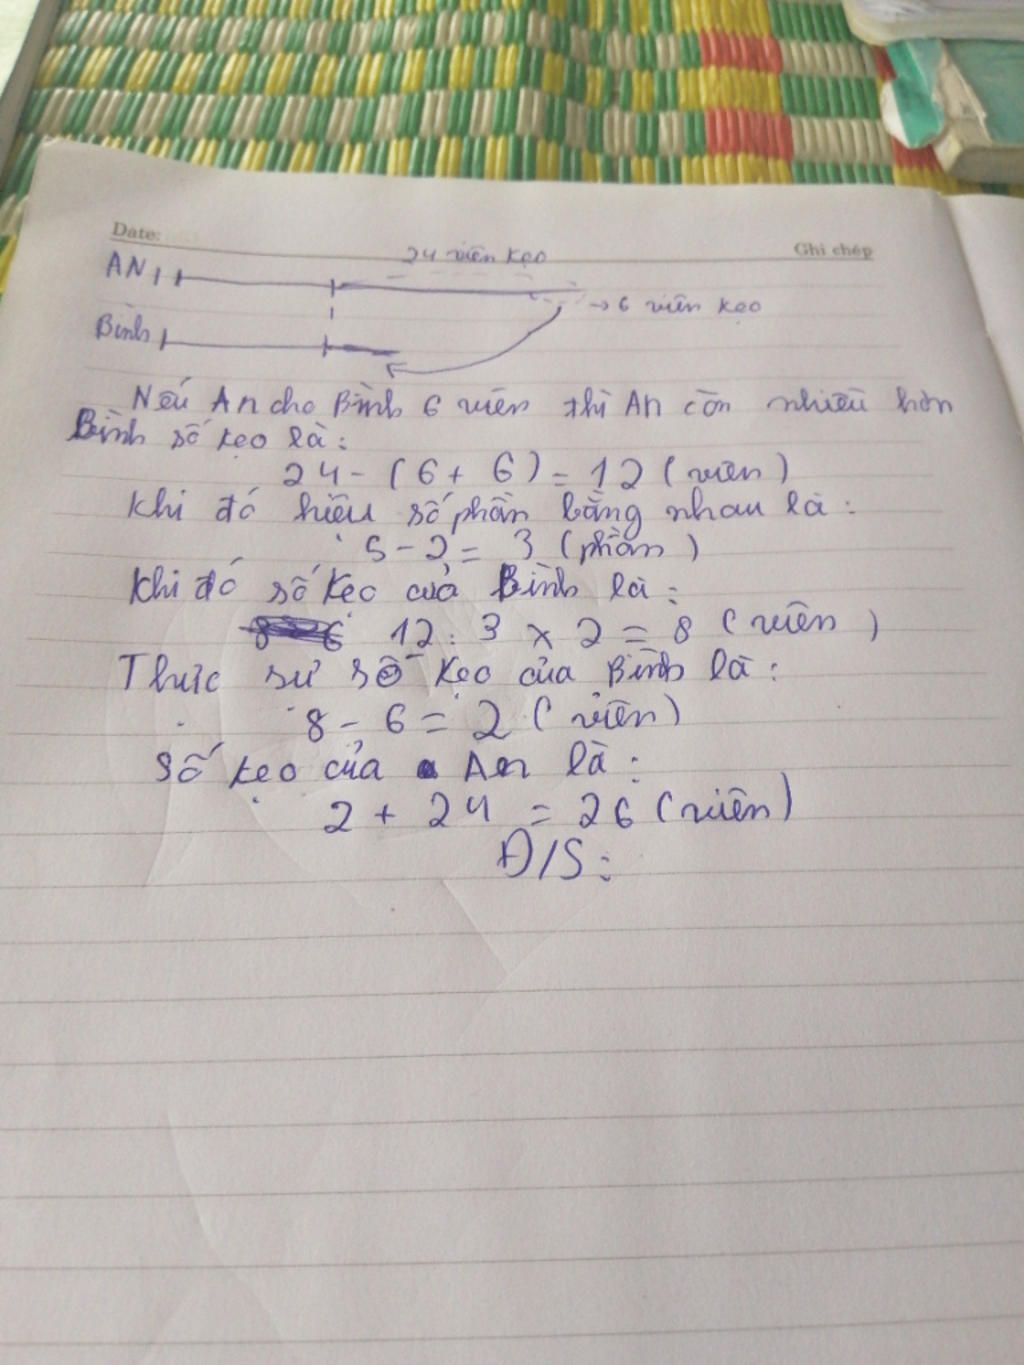 Date:
Ghi chép
24 viên kẹo
AN
→ 6 viên kẹo
Bình
Nếu An cho Bình 6 viên thì An còn nhiều hơn
Bình số kẹo là:
24 - (6 + 6) = 12 (viên)
Khi đó hiệu số phần bằng nhau là:
5 - 2 = 3 (phần)
Khi đó số kẹo của Bình là:
12 : 3 x 2 = 8 (viên)
Thực sự số kẹo của Bình là:
8 - 6 = 2 (viên)
Số kẹo của An là:
2 + 24 = 26 (viên)
Đ/S: